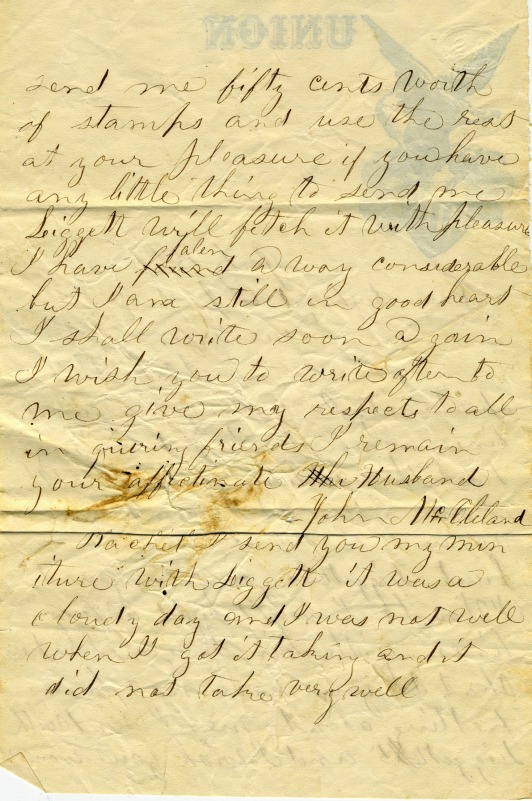 send me fifty cents worth
of stamps and use the rest
at your pleasure if you have
any little thing to send me
Liggett will fetch it with pleasure
I have falen a way considerable
but I am still in good heart
I shall write soon again
I wish you to write often to
me give my respects to all
in quiring friends I remain
your affectinate Husband
John McCleland
Rachel I send you my min
iture with Liggett it was a
cloudy day and I was not well
when I got it taking and it
did not take very well
UNION